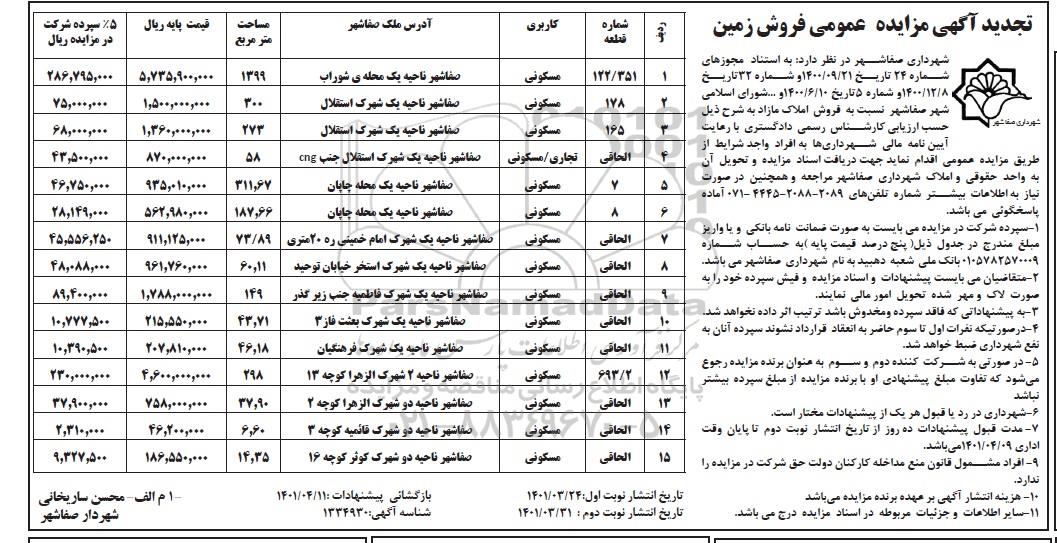 تجدید آگهی مزایده عمومی فروش زمین
شهرداری صفاشهر در نظر دارد: به استناد مجوزهای
شماره ۲۴ تاریخ ۱۴۰۰/۰۹/۲۱و شماره ۳۲تاریخ
۱۴۰۰/۱۲/۸و شماره ۵تاریخ ۱۴۰۰/۶/۱۰و ...شورای اسلامی
شهر صفاشهر نسبت به فروش املاک مازاد به شرح ذیل
حسب ارزیابی کارشناس رسمی دادگستری با رعایت
آیین نامه مالی شهرداری‌ها به افراد واجد شرایط از
طریق مزایده عمومی اقدام نماید جهت دریافت اسناد مزایده و تحویل آن
به واحد حقوقی و املاک شهرداری صفاشهر مراجعه و همچنین در صورت
نیاز به اطلاعات بیشتر شماره تلفن‌های ۲۰۸۹-۲۰۸۸-۴۴۴۵-۰۷۱ آماده
پاسخگوئی می باشد.
۱-سپرده شرکت در مزایده می بایست به صورت ضمانت نامه بانکی و یا واریز
مبلغ مندرج در جدول ذیل( پنج درصد قیمت پایه )به حساب شماره
۰۱۰۵۷۸۲۵۷۰۰۰۹بانک ملی شعبه دهبید به نام شهرداری صفاشهر می باشد.
۲-متقاضیان می بایست پیشنهادات و اسناد مزایده و فیش سپرده خود را به
صورت لاک و مهر شده تحویل امور مالی نمایند.
۳-به پیشنهاداتی که فاقد سپرده ومخدوش باشد ترتیب اثر داده نخواهد شد.
۴-درصورتیکه نفرات اول تا سوم حاضر به انعقاد قرارداد نشوند سپرده آنان به
نفع شهرداری ضبط خواهد شد.
۵- در صورتی به شرکت کننده دوم و سوم به عنوان برنده مزایده رجوع
می‌شود که تفاوت مبلغ پیشنهادی او با برنده مزایده از مبلغ سپرده بیشتر
نباشد
۶-شهرداری در رد یا قبول هر یک از پیشنهادات مختار است.
۷- مدت قبول پیشنهادات ده روز از تاریخ انتشار نوبت دوم تا پایان وقت
اداری ۱۴۰۱/۰۴/۰۹می‌باشد.
۹- افراد مشمول قانون منع مداخله کارکنان دولت حق شرکت در مزایده را
ندارد.
۱۰- هزینه انتشار آگهی بر عهده برنده مزایده می‌باشد
۱۱-سایر اطلاعات و جزئیات مربوطه در اسناد مزایده درج می باشد.
شهرداری صفاشهر
ردیف شماره قطعه کاربری آدرس ملک صفاشهر مساحت متر مربع قیمت پایه ریال ۵٪ سپرده شرکت در مزایده ریال
۱ ۱۲۲/۳۵۱ مسکونی صفاشهر ناحیه یک محله ی شوراب ۱۳۹۹ ۵,۷۳۵,۹۰۰,۰۰۰ ۲۸۶,۷۹۵,۰۰۰
۲ ۱۷۸ مسکونی صفاشهر ناحیه یک شهرک استقلال ۳۰۰ ۱,۵۰۰,۰۰۰,۰۰۰ ۷۵,۰۰۰,۰۰۰
۳ ۱۶۵ مسکونی صفاشهر ناحیه یک شهرک استقلال ۲۷۳ ۱,۳۶۰,۰۰۰,۰۰۰ ۶۸,۰۰۰,۰۰۰
۴ الحاقی تجاری/مسکونی صفاشهر ناحیه یک شهرک استقلال جنب cng ۵۸ ۸۷۰,۰۰۰,۰۰۰ ۴۳,۵۰۰,۰۰۰
۵ ۷ مسکونی صفاشهر ناحیه یک محله چاپان ۳۱۱,۶۷ ۹۳۵,۰۱۰,۰۰۰ ۴۶,۷۵۰,۰۰۰
۶ ۸ مسکونی صفاشهر ناحیه یک محله چاپان ۱۸۷,۶۶ ۵۶۲,۹۸۰,۰۰۰ ۲۸,۱۴۹,۰۰۰
۷ الحاقی مسکونی صفاشهر ناحیه یک شهرک امام خمینی ره ۲۰متری ۷۳/۸۹ ۹۱۱,۱۲۵,۰۰۰ ۴۵,۵۵۶,۲۵۰
۸ الحاقی مسکونی صفاشهر ناحیه یک شهرک استخر خیابان توحید ۶۰,۱۱ ۹۶۱,۷۶۰,۰۰۰ ۴۸,۰۸۸,۰۰۰
۹ الحاقی مسکونی صفاشهر ناحیه یک شهرک فاطمیه جنب زیر گذر ۱۴۹ ۱,۷۸۸,۰۰۰,۰۰۰ ۸۹,۴۰۰,۰۰۰
۱۰ الحاقی مسکونی صفاشهر ناحیه یک شهرک بعثت فاز۳ ۴۳,۷۱ ۲۱۵,۵۵۰,۰۰۰ ۱۰,۷۷۷,۵۰۰
۱۱ الحاقی مسکونی صفاشهر ناحیه یک شهرک فرهنگیان ۴۶,۱۸ ۲۰۷,۸۱۰,۰۰۰ ۱۰,۳۹۰,۵۰۰
۱۲ ۶۹۳/۲ مسکونی صفاشهر ناحیه ۲ شهرک الزهرا کوچه ۱۳ ۲۹۸ ۴,۶۰۰,۰۰۰,۰۰۰ ۲۳۰,۰۰۰,۰۰۰
۱۳ الحاقی مسکونی صفاشهر ناحیه دو شهرک الزهرا کوچه ۲ ۳۷,۹۰ ۷۵۸,۰۰۰,۰۰۰ ۳۷,۹۰۰,۰۰۰
۱۴ الحاقی مسکونی صفاشهر ناحیه دو شهرک قائمیه کوچه ۳ ۶,۶۰ ۴۶,۲۰۰,۰۰۰ ۲,۳۱۰,۰۰۰
۱۵ الحاقی مسکونی صفاشهر ناحیه دو شهرک کوثر کوچه ۱۶ ۱۴,۳۵ ۱۸۶,۵۵۰,۰۰۰ ۹,۳۲۷,۵۰۰
تاریخ انتشار نوبت اول:۱۴۰۱/۰۳/۲۴ بازگشائی پیشنهادات :۱۴۰۱/۰۴/۱۱
تاریخ انتشار نوبت دوم : ۱۴۰۱/۰۳/۳۱ شناسه آگهی:۱۳۳۴۹۳۰
۱۰ م الف- محسن ساریخانی
شهردار صفاشهر
ParsNamadData
پایگاه اطلاع رسانی مناقصه و مزایده
۰۲۱-۸۸۳۴۹۶۷۰-۵